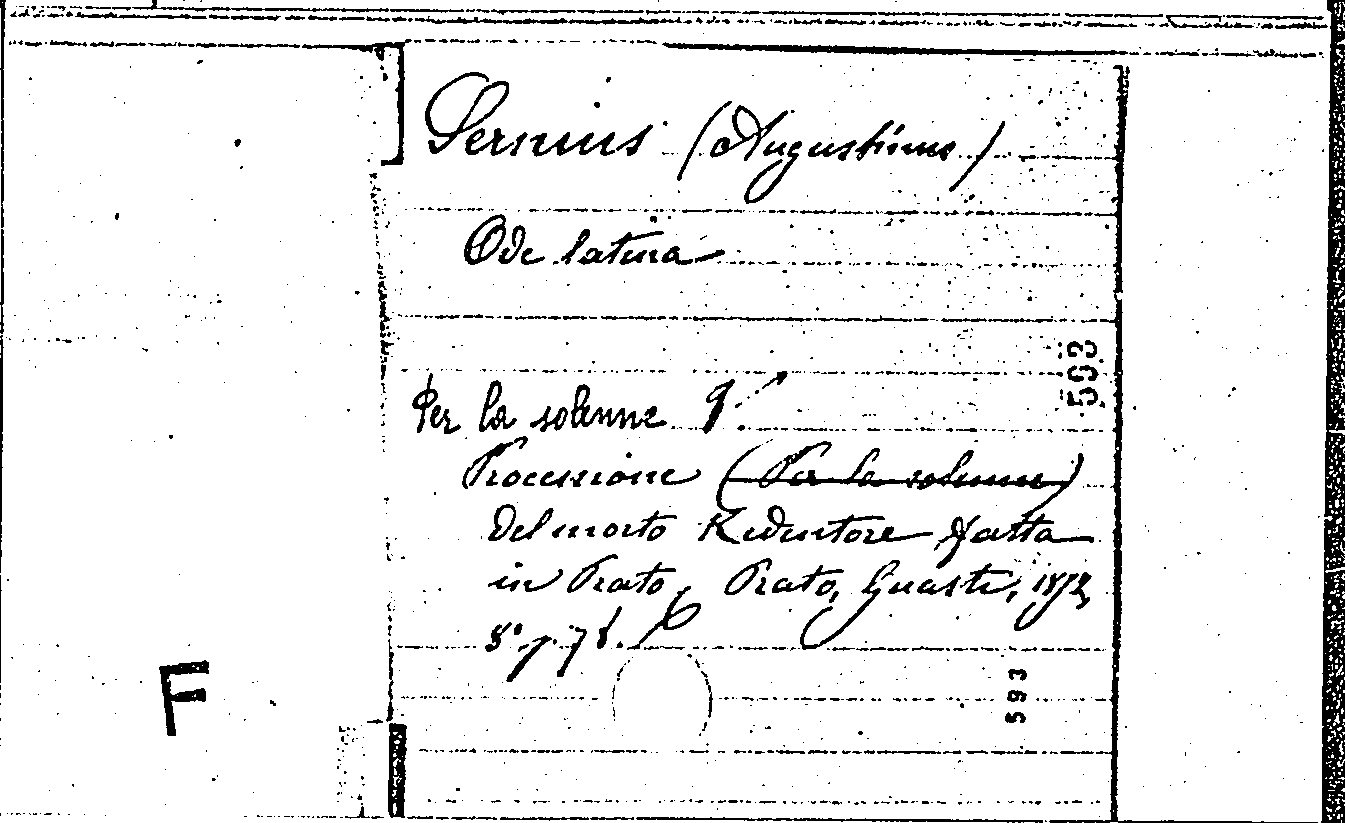 Sernius (Augustinus)
Ode latina
Per la solenne
Processione (Per la solenne)
Del morto Redentore fatta
in Prato, Prato, Guasti, 1872,
8° p. 78.
593
593
F